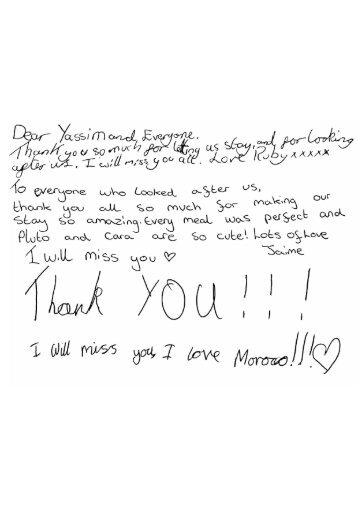 Dear Yassim and Everyone.
Thank you so much for letting us stay, and for looking
after us. I will miss you all. Love Ruby xxxxx
To everyone who looked after us,
thank you all so much for making our
stay so amazing. Every meal was perfect and
Pluto and Cara are so cute! Lots of love
I will miss you ♡ Jaime
Thank YOU!!!
I will miss you I love Moroco!!!♡